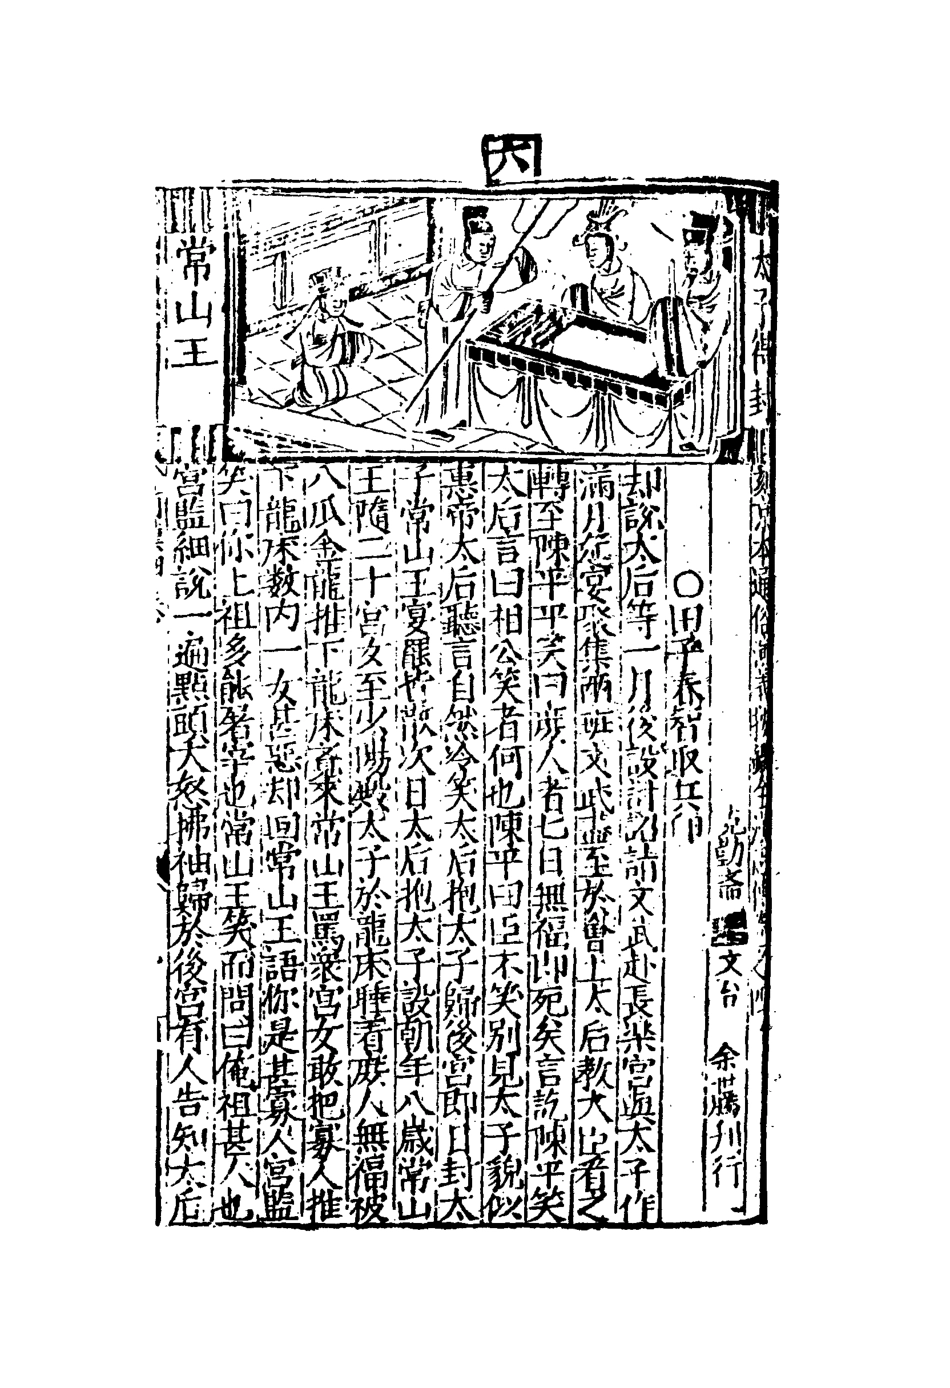 六
太子得封
常山王
刻京本通俗演義按鑑全漢志傳卷之四
克勤齋 文台 余世騰刊行
○田子春智取兵印
却說太后等一月後設計詔請文武赴長樂宮與太子作
滿月筵宴聚集兩班文武盡至於會上太后教大臣看之
轉至陳平平笑曰庶人者七日無福即死矣言訖陳平笑
太后言曰相公笑者何也陳平曰臣不笑別見太子貌似
惠帝太后聽言自然冷笑太后抱太子歸後宮即日封太
子常山王宴罷皆散次日太后抱太子設朝年八歲常山
王隨二十宮女至少陽殿太子於龍床睡着庶人無福被
八爪金龍推下龍床斉來常山王罵衆宮女敢把寡人推
下龍床數內一女甚惡却回常山王語你是甚寡人宮監
笑曰你上祖多能屠宰也常山王笑而問曰俺祖甚人也
宮監細說一遍點頭大怒拂袖歸於後宮有人告知太后